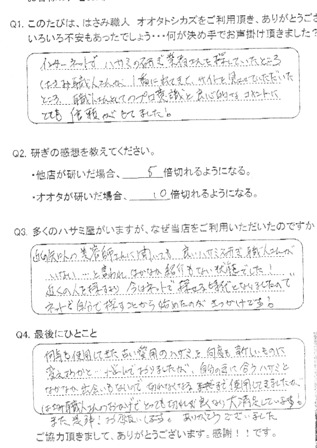 Q1. このたびは、はさみ職人 オオタトシカズをご利用頂き、ありがとうござ
いろいろ不安もあったでしょう・・・何が決め手でお声掛け頂きました?
インターネットで ハサミの研ぎ業者さんを探していたところ
はさみ職人さんが 1番に出てきて、サイトを見させていただいた
ところ 職人さんとしてのプロ意識と良心的なコメントに
とても 信頼がもてました!
Q2. 研ぎの感想を教えてください。
・他店が研いだ場合、 5 倍切れるようになる。
・オオタが研いだ場合、 10 倍切れるようになる。
Q3. 多くのハサミ屋がいますが、なぜ当店をご利用いただいたのですか
美容師さんに聞いても 良いハサミ研ぎ職人さんが
いない…と言われ なかなか紹介もない状態でした!
近くの人を探すより 今はネットで探せる時代となりましたので
ネットで自分で探すことから始めたのがきっかけです!
Q4. 最後にひとこと
何年も使用してきた古い愛用のハサミを 何度も新しいものに
変えようかと 思っておりましたが、自分の手に合うハサミと
なかなか出会いもないで 切れなくなるまで使用してきましたが、
はさみ職人さんのおかげで とっても切れ味が良くなり大満足しています!
また、是非! お願いします。 ありがとうございました
ご協力頂きまして、ありがとうございます。感謝!!です。